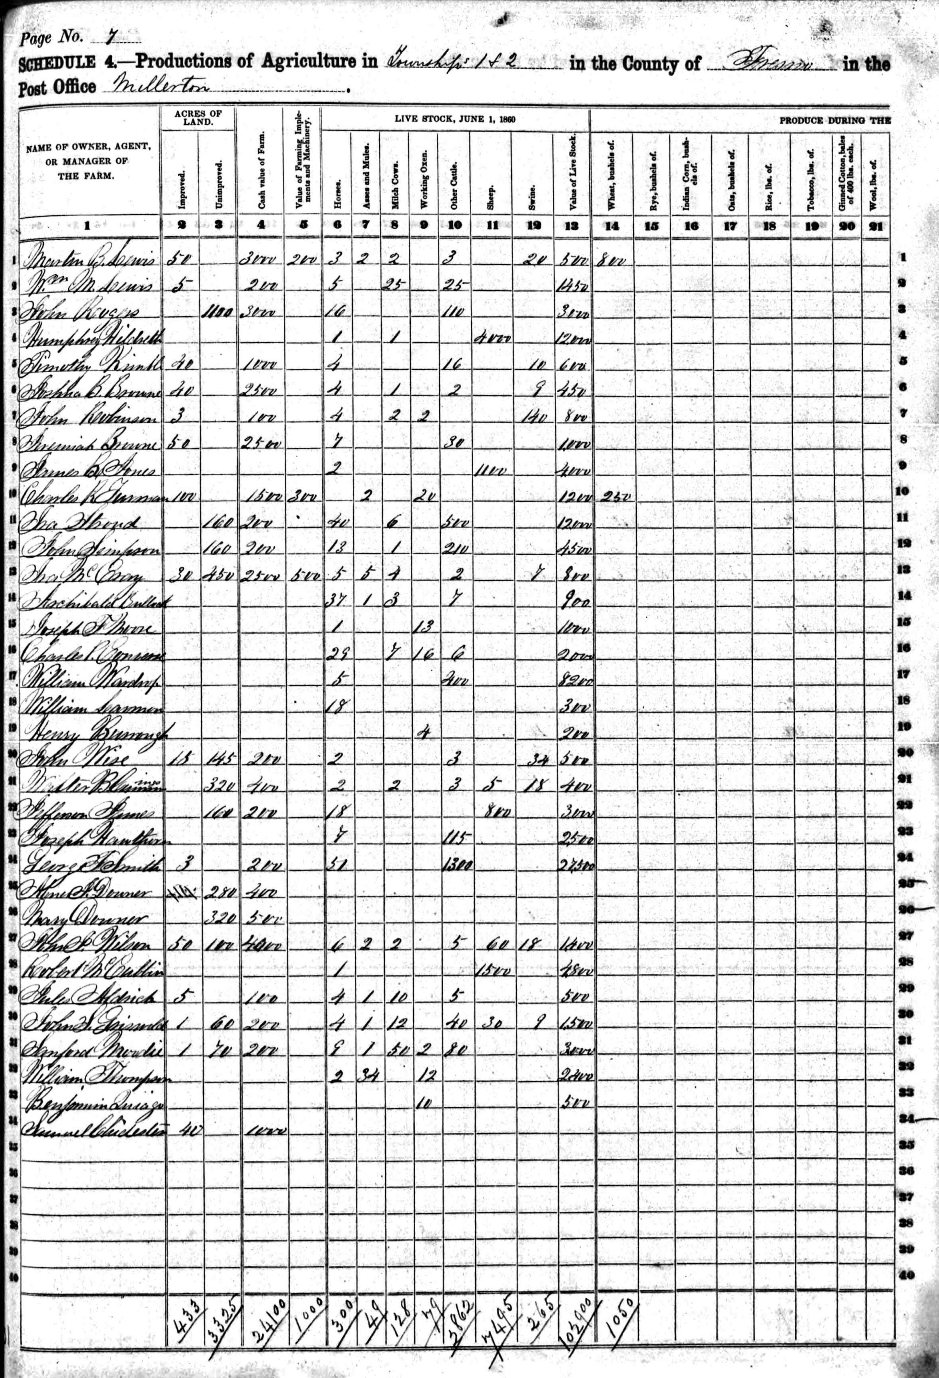 Page No. 7
SCHEDULE 4.—Productions of Agriculture in Townships 1 & 2 in the County of Fresno in the
Post Office Millerton.
NAME OF OWNER, AGENT, OR MANAGER OF THE FARM. ACRES OF LAND. Improved. Unimproved. Cash value of Farm. Value of Farming Implements and Machinery. LIVE STOCK, JUNE 1, 1860 Horses. Asses and Mules. Milch Cows. Working Oxen. Other Cattle. Sheep. Swine. Value of Live Stock. PRODUCE DURING THE Wheat, bushels of. Rye, bushels of. Indian Corn, bushels of. Oats, bushels of. Rice, lbs. of. Tobacco, lbs. of. Ginned Cotton, bales of 400 lbs. each. Wool, lbs. of.
1 2 3 4 5 6 7 8 9 10 11 12 13 14 15 16 17 18 19 20 21
1 Martin B. Lewis 50 3000 200 3 2 2 3 20 500 800 1
2 Wm M. Lewis 5 200 5 25 25 1450 2
3 John Rogers 1100 3000 16 110 3000 3
4 Humphrey Hildreth 1 1 4000 12000 4
5 Timothy Kimble 40 1000 4 16 10 600 5
6 Joshua B. Browne 40 2500 4 1 2 9 450 6
7 John Robinson 3 100 4 2 2 140 800 7
8 Jeremiah Browne 50 2500 7 30 1000 8
9 James B. Jones 2 1100 4000 9
10 Charles K. Furman 100 1500 300 2 20 1200 250 10
11 Ira Stroud 160 200 40 6 500 12000 11
12 John Simpson 160 200 13 1 210 4500 12
13 Ira McCray 30 450 2500 500 5 5 4 2 7 800 13
14 Archibald Bullock 37 1 3 7 900 14
15 Joseph F. Moore 1 13 1000 15
16 Charles P. Converse 29 7 16 6 2000 16
17 William Wardrop 5 400 8200 17
18 William Harmon 18 300 18
19 Henry Burrough 4 200 19
20 John Wise 15 145 200 2 3 34 500 20
21 Walter B. Grimes 320 400 2 2 3 5 18 400 21
22 Jefferson James 160 200 18 800 3000 22
23 Joseph Hawthorn 7 115 2500 23
24 George F. Smith 3 200 51 1300 27500 24
25 Downer 280 400 25
26 Mary Downer 320 500 26
27 John S. Wilson 50 100 4000 6 2 2 5 60 18 1400 27
28 Robert McCublin 1 1500 4800 28
29 Jules Aldrich 5 100 4 1 10 5 500 29
30 John L. Griswold 1 60 200 4 1 12 40 30 9 1500 30
31 Sanford Moodie 1 70 200 9 1 50 2 80 3000 31
32 William Thompson 2 34 12 2400 32
33 Benjamin 10 500 33
34 Samuel Chidester 40 1000 34
35 35
36 36
37 37
38 38
39 39
40 40
433 3325 24100 1000 300 49 128 79 2862 7495 265 102900 1050